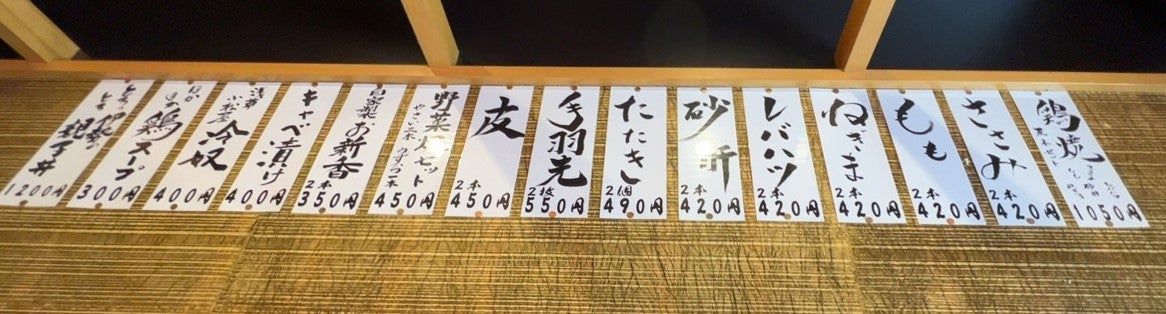 鶏焼
1050円
ささみ
2本
420円
もも
2本
420円
ねぎま
2本
420円
レバハツ
2本
420円
砂肝
2本
420円
たたき
2個
490円
手羽先
2枚
550円
皮
2本
450円
野菜焼セット
450円
自家製
お新香
2本
350円
キャベ漬け
400円
浅草
小松屋
冷奴
400円
鶏スープ
300円
親子丼
1200円